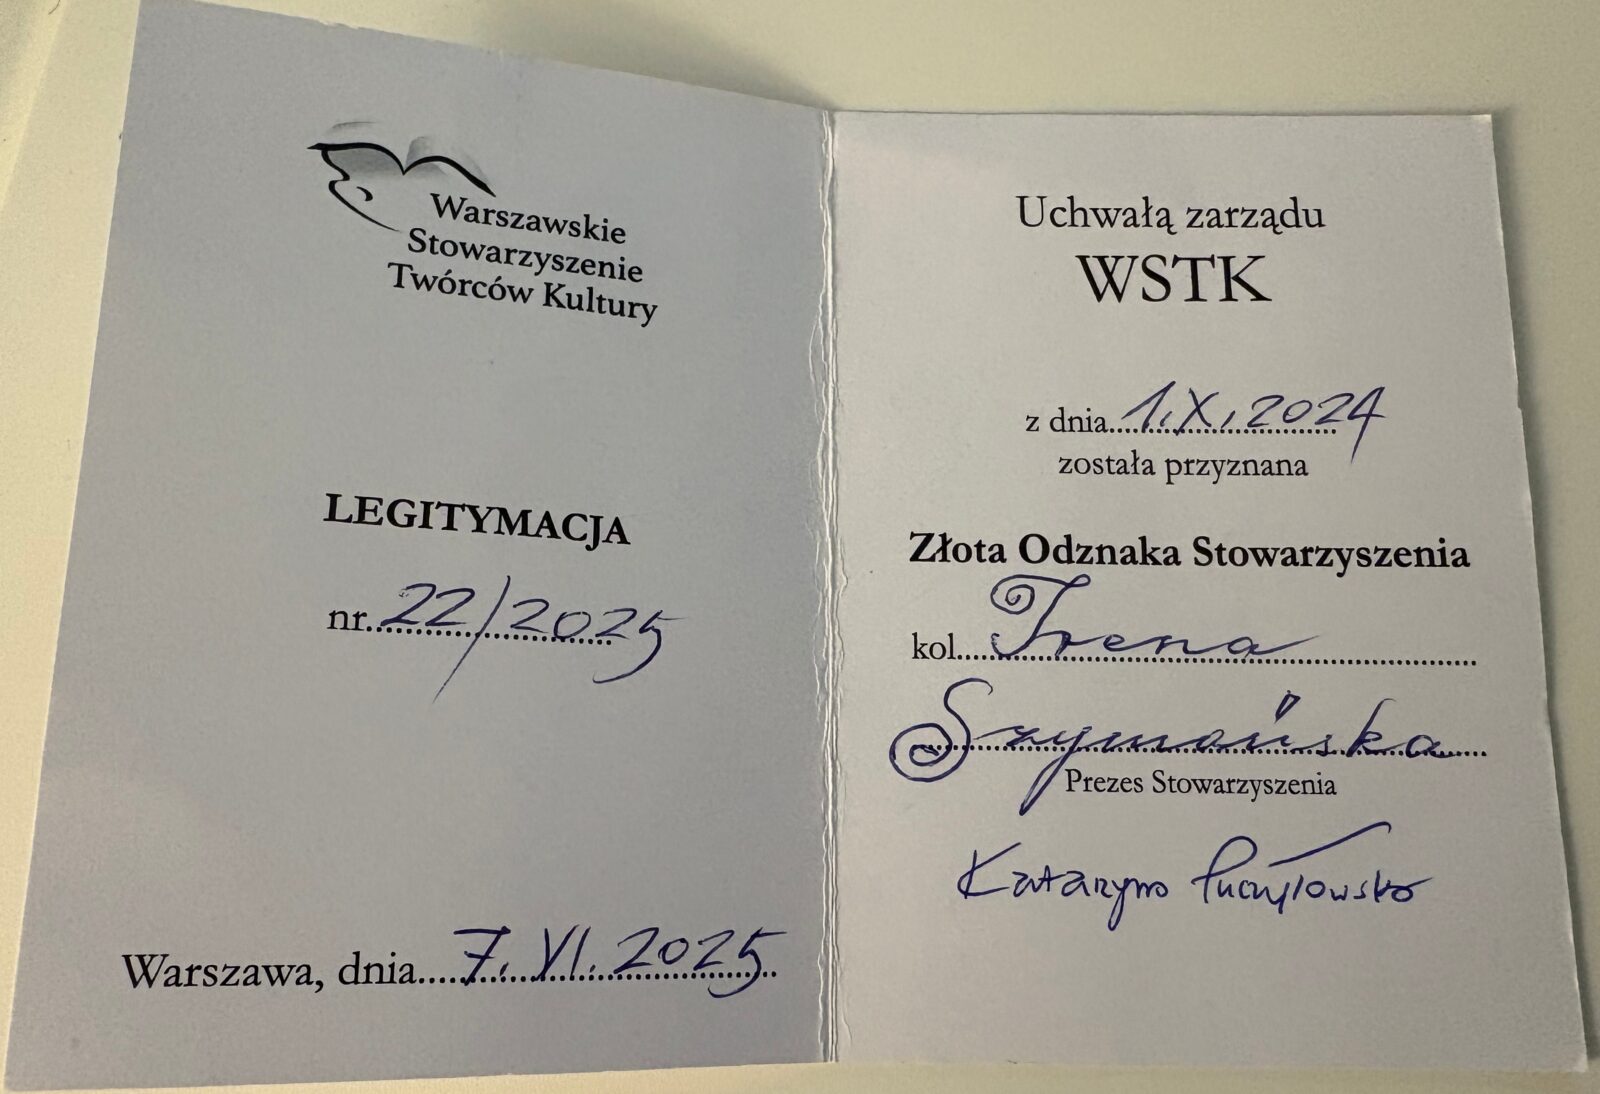 Warszawskie
Stowarzyszenie
Twórców Kultury
LEGITYMACJA
nr. 22/2025
Warszawa, dnia 7. VI. 2025
Uchwałą zarządu
WSTK
z dnia 1.X.2024
została przyznana
Złota Odznaka Stowarzyszenia
kol. Irena
Szymańska
Prezes Stowarzyszenia
Katarzyna